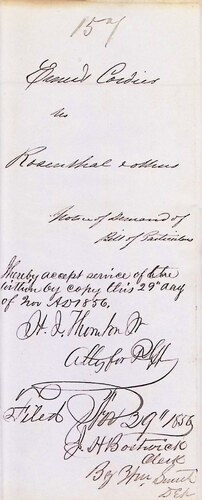 157
Cordier
vs
Rosenthal & others
Notice of Demand of
Bill of Particulars
I hereby accept service of the
within by copy this 29th day
of Nov AD 1856.
H. I. Thornton Jr
Atty for Plff
Filed Nov 29th 1856
J H Bostwick
Clerk
By Wm Smith
Dep